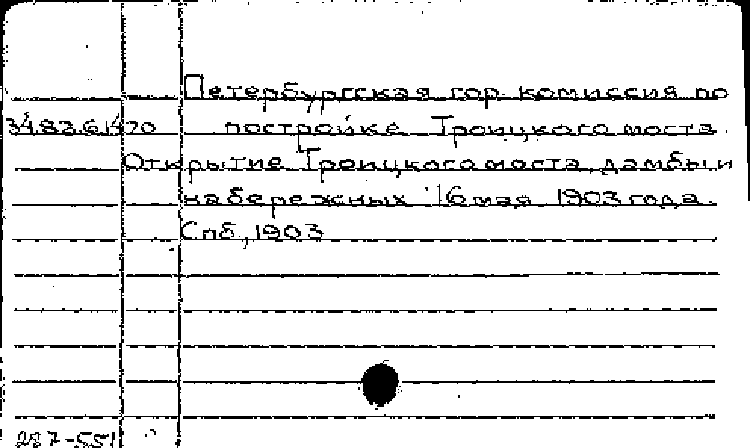 Петербургская гор. комиссия по
34.83.6.1470 постройке Троицкого моста.
Открытие Троицкого моста, дамбы и
набережных 16 мая 1903 года.
Спб., 1903
287-551